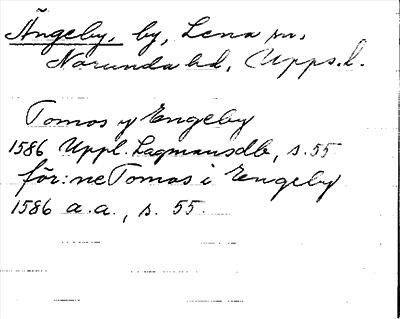 Ängeby, by, Lena sn,
Norunda hd, Upps. l.
Tomos y Engeby
1586 Uppl. Lagmansdb, s. 55
för:ne Tomas i Engeby
1586 a.a., s. 55.